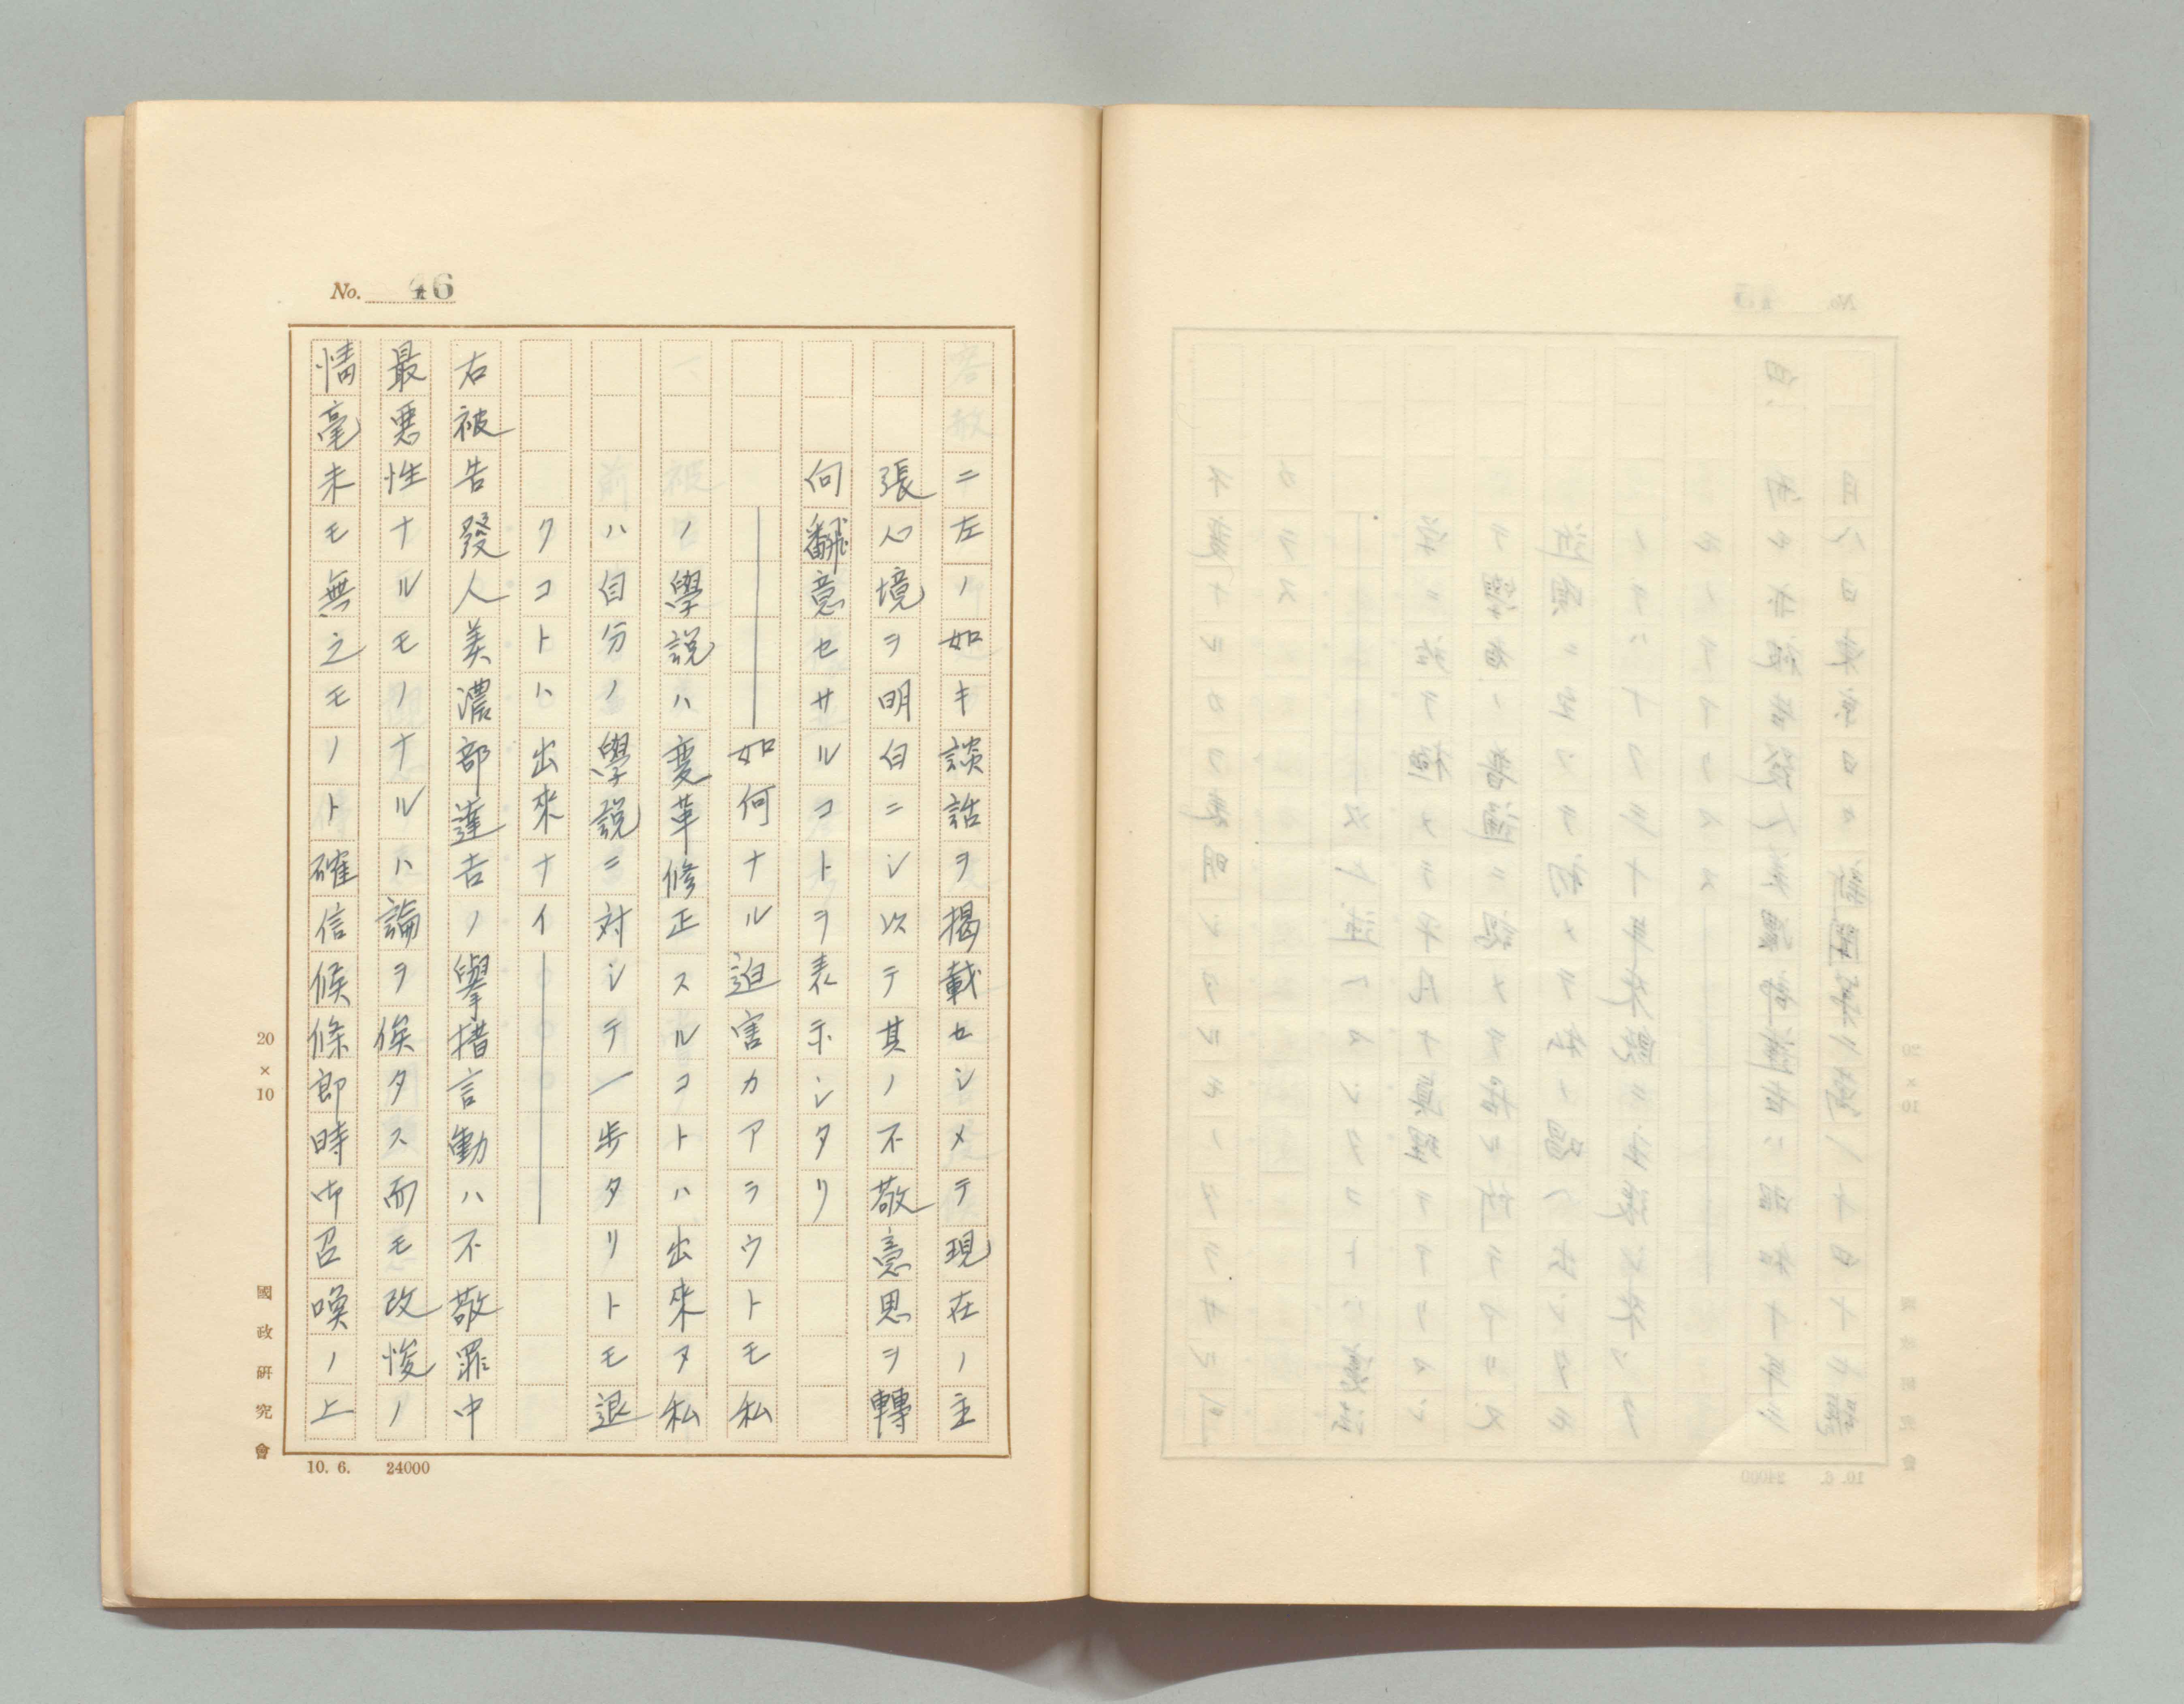 No. 46
ニ左ノ如キ談話ヲ掲載セシメテ現在ノ主
張心境ヲ明白ニシ以テ其ノ不敬意思ヲ轉
向飜意セサルコトヲ表示シタリ
──如何ナル迫害カアラウトモ私
ノ學説ハ変革修正スルコトハ出來ヌ私
ハ自分ノ學説ニ対シテ一歩タリトモ退
クコトハ出來ナイ──
右被告發人美濃部達吉ノ擧措言動ハ不敬罪中
最悪性ナルモノナルハ論ヲ俟タス而モ改悛ノ
情毫末モ無之モノト確信候條即時御召喚ノ上
20×10
國政研究會
10. 6. 24000